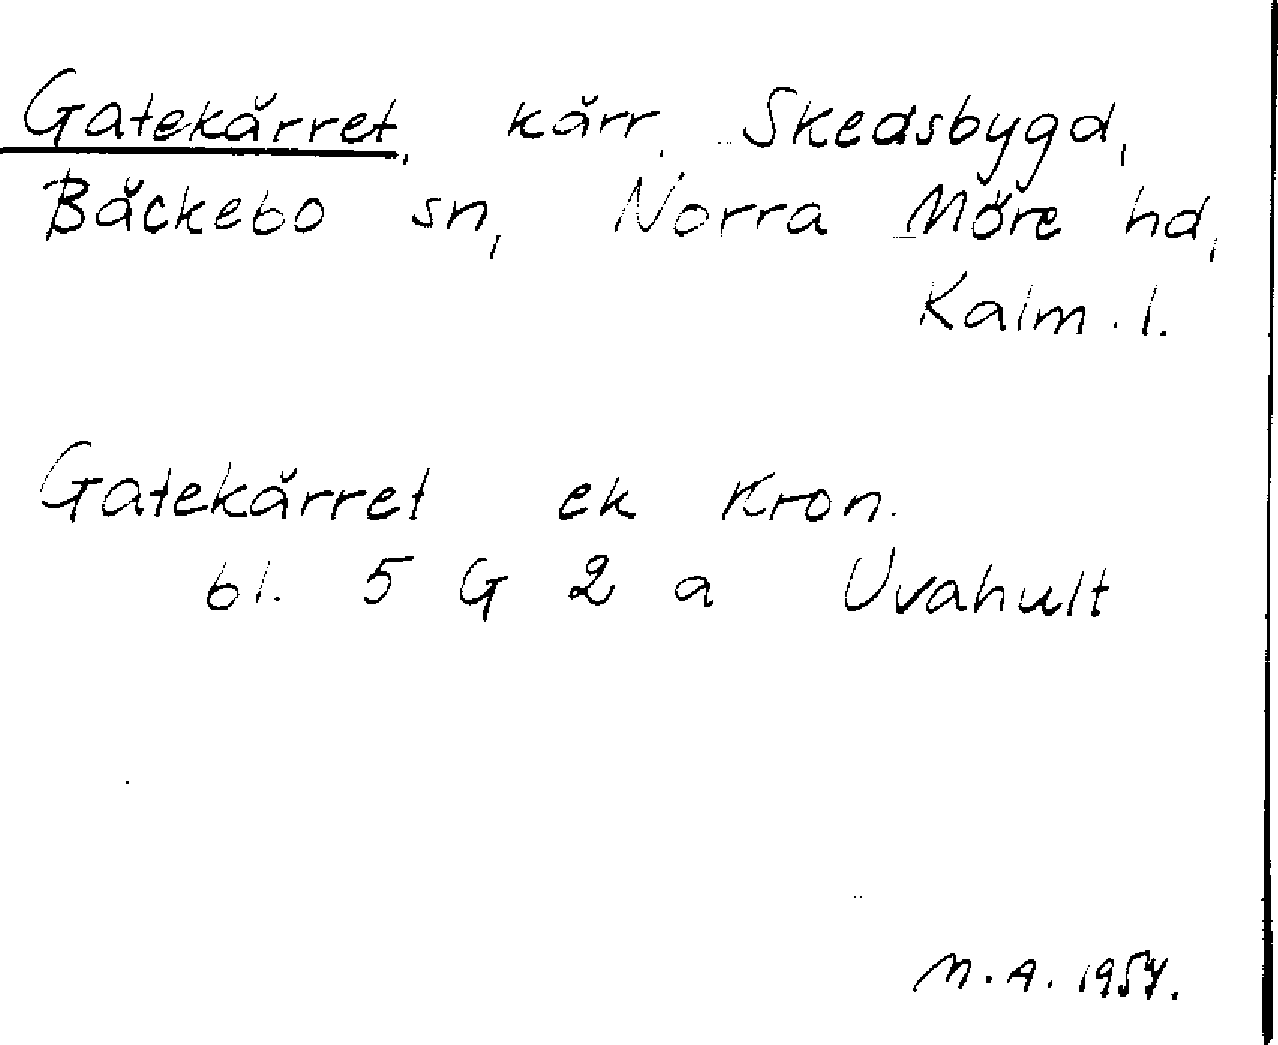 Gatekärret, kärr, Skedsbygd,
Bäckebo sn, Norra Möre hd,
Kalm. l.
Gatekärret ek Kron.
bl. 5 G 2 a Uvahult
M.A. 1957.